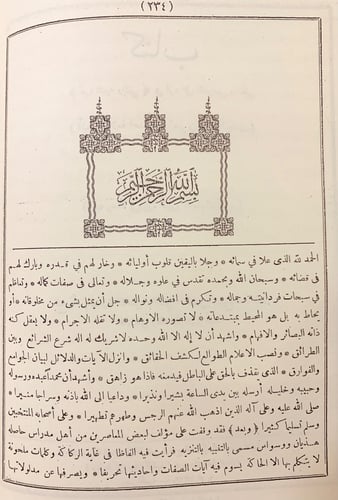 (٢٣٤)
بسم الله الرحمن الرحيم
الحمد لله الذى علا في سمائه * وجلا باليقين قلوب أوليائه * وخار لهم في قدره وبارك لهم
في قضائه * وسبحان الله وبحمده تقدس في علوه وجلاله * وتعالى في صفات كماله * وتعاظم
في سبحات فردانيته وجماله * وتكرم في افضاله ونواله * جل أن يمثل بشىء من مخلوقاته * أو
يحاط به بل هو المحيط بمبتدعاته * لا تصوره الاوهام * ولا تقله الاجرام * ولا يعقل كنه
ذاته البصائر والافهام * وأشهد أن لا إله الا الله وحده لا شريك له الله شرع الشرائع وبين
الطرائق * ونصب الاعلام الطوالع لكشف الحقائق * وانزل الآيات والدلائل لبيان الجوامع
والفوارق * الذى نقذف بالحق على الباطل فيدمغه فاذا هو زاهق * وأشهد أن محمداً عبده ورسوله
وحبيبه وخليله أرسله بين يدى الساعة بشيرا ونذيرا * وداعيا الى الله باذنه وسراجا منيرا *
صلى الله عليه وعلى آله الذين اذهب الله عنهم الرجس وطهرهم تطهيرا * وعلى أصحابه المنتخبين
وسلم تسليما كثيرا (وبعد) فقد وقفت على مؤلف لبعض المعاصرين من أهل مدراس حاصله
هذيان ووسواس مسمى بالتنبيه بالتنزيه فرأيت فيه الفاظا في غاية الركاكة وكلمات ملحونة
لا يتكلم بها الا الحاكة يسوم فيه آيات الصفات واحاديثها تحريفا * ويصرفها عن مدلولاتها